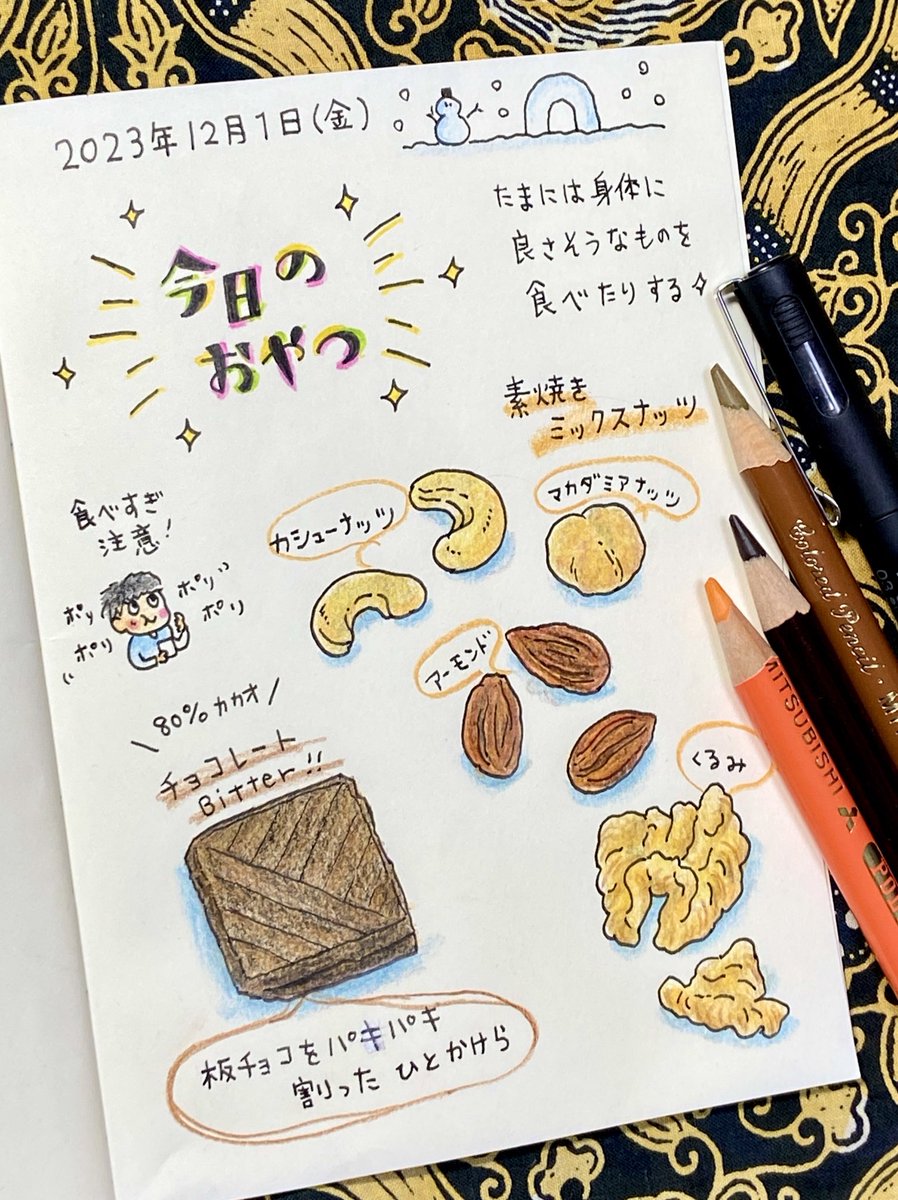 2023年12月1日(金)
たまには身体に
良さそうなものを
食べたりする
今日の
おやつ
素焼き
ミックスナッツ
カシューナッツ
マカダミアナッツ
食べすぎ
注意!
ポリ
ポリ
ポリ
ポリ
アーモンド
くるみ
\ 80%カカオ /
チョコレート
Bitter!!
板チョコをパキパキ
割りった ひとかけら
Colored Pencil
MITSUBISHI